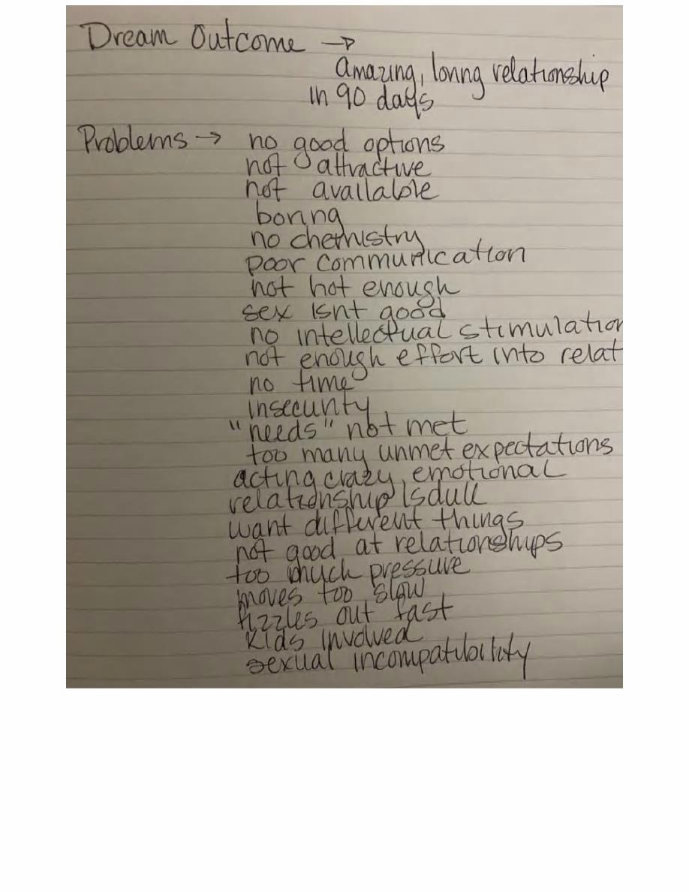 Dream Outcome →
Amazing, loving relationship
in 90 days
Problems → no good options
not attractive
not available
boring
no chemistry
poor communication
not hot enough
sex isnt good
no intellectual stimulation
not enough effort into relat
no time
insecurity
"needs" not met
too many unmet expectations
acting crazy, emotional
relationship is dull
want different things
not good at relationships
too much pressure
moves too slow
fizzles out fast
kids involved
sexual incompatibility